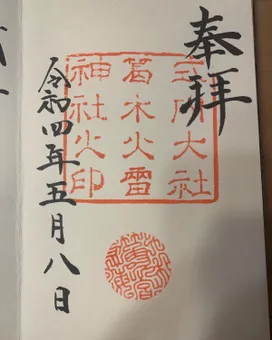 奉拝
式内大社
葛木火雷
神社之印
令和四年五月八日